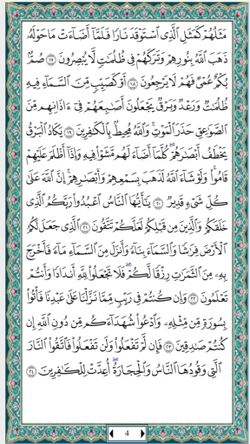 مَثَلُهُمْ كَمَثَلِ الَّذِي اسْتَوْقَدَ نَارًا فَلَمَّا أَضَاءَتْ مَا حَوْلَهُ
ذَهَبَ اللَّهُ بِنُورِهِمْ وَتَرَكَهُمْ فِي ظُلُمَاتٍ لَّا يُبْصِرُونَ ١٧ صُمٌّ
بُكْمٌ عُمْيٌ فَهُمْ لَا يَرْجِعُونَ ١٨ أَوْ كَصَيِّبٍ مِّنَ السَّمَاءِ فِيهِ
ظُلُمَاتٌ وَرَعْدٌ وَبَرْقٌ يَجْعَلُونَ أَصَابِعَهُمْ فِي ءَاذَانِهِم مِّنَ
الصَّوَاعِقِ حَذَرَ الْمَوْتِ وَاللَّهُ مُحِيطٌ بِالْكَافِرِينَ ١٩ يَكَادُ الْبَرْقُ
يَخْطَفُ أَبْصَارَهُمْ كُلَّمَا أَضَاءَ لَهُم مَّشَوْا فِيهِ وَإِذَا أَظْلَمَ عَلَيْهِمْ
قَامُوا وَلَوْ شَاءَ اللَّهُ لَذَهَبَ بِسَمْعِهِمْ وَأَبْصَارِهِمْ إِنَّ اللَّهَ عَلَىٰ
كُلِّ شَيْءٍ قَدِيرٌ ٢٠ يَا أَيُّهَا النَّاسُ اعْبُدُوا رَبَّكُمُ الَّذِي
خَلَقَكُمْ وَالَّذِينَ مِن قَبْلِكُمْ لَعَلَّكُمْ تَتَّقُونَ ٢١ الَّذِي جَعَلَ لَكُمُ
الْأَرْضَ فِرَاشًا وَالسَّمَاءَ بِنَاءً وَأَنزَلَ مِنَ السَّمَاءِ مَاءً فَأَخْرَجَ
بِهِ مِنَ الثَّمَرَاتِ رِزْقًا لَّكُمْ فَلَا تَجْعَلُوا لِلَّهِ أَندَادًا وَأَنتُمْ
تَعْلَمُونَ ٢٢ وَإِن كُنتُمْ فِي رَيْبٍ مِّمَّا نَزَّلْنَا عَلَىٰ عَبْدِنَا فَأْتُوا
بِسُورَةٍ مِّن مِّثْلِهِ وَادْعُوا شُهَدَاءَكُم مِّن دُونِ اللَّهِ إِن
كُنتُمْ صَادِقِينَ ٢٣ فَإِن لَّمْ تَفْعَلُوا وَلَن تَفْعَلُوا فَاتَّقُوا النَّارَ
الَّتِي وَقُودُهَا النَّاسُ وَالْحِجَارَةُ أُعِدَّتْ لِلْكَافِرِينَ ٢٤
4